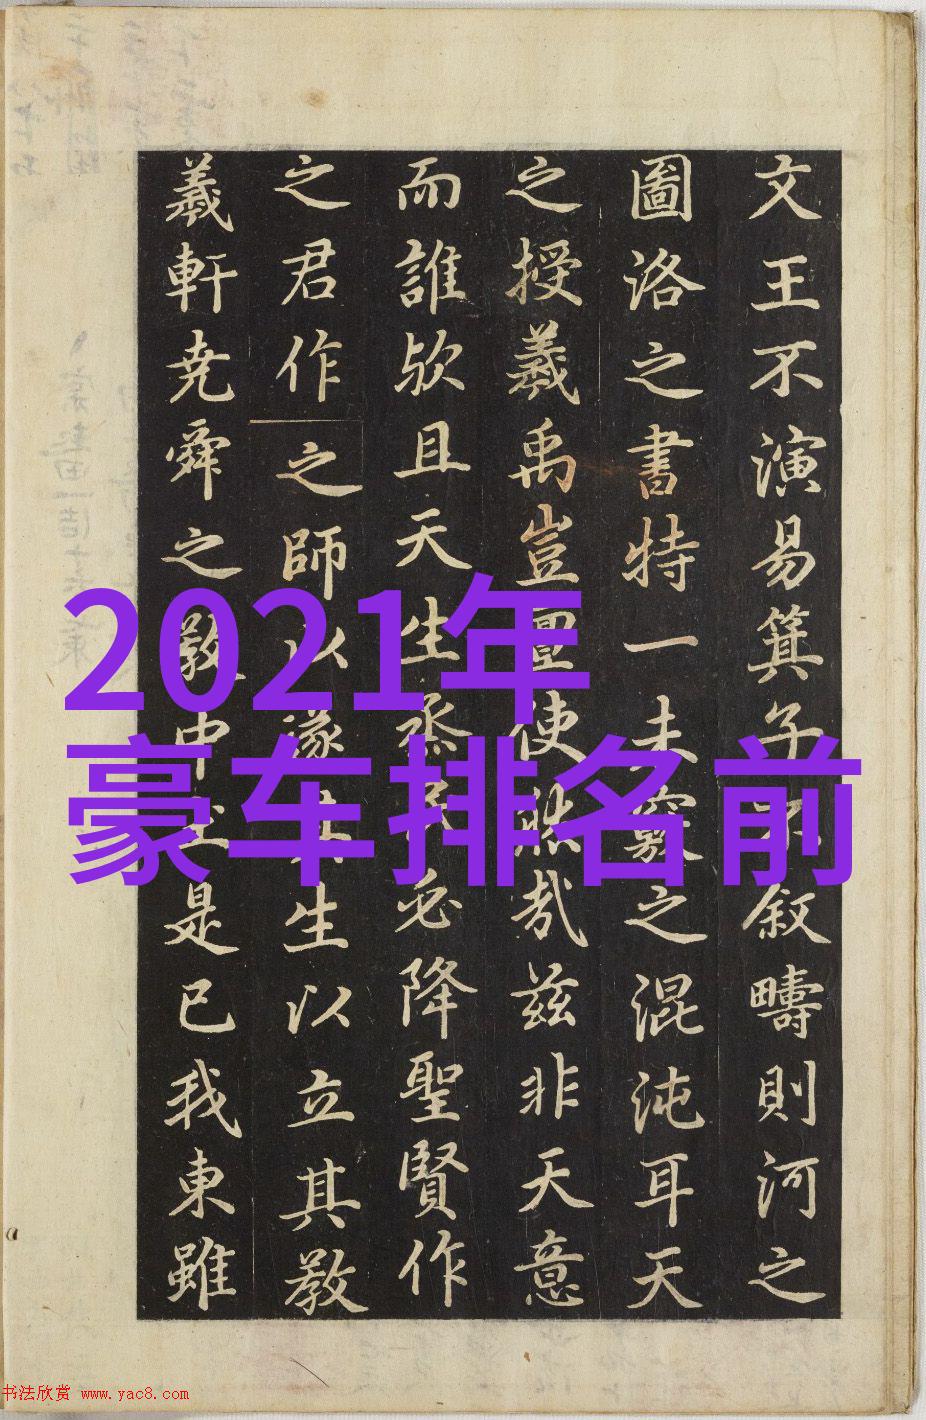 文王不演易箕子不叙疇則河之
圖洛之書特一未窮之混沌耳天
之授羲禹豈亶使然哉兹非天意
而誰欤且天生烝民必降聖賢作
之君作之師以遂其生以立其教
羲軒尭舜之教中正是已我東雖
2021年
豪车排名前
书法欣赏 www.yac8.com